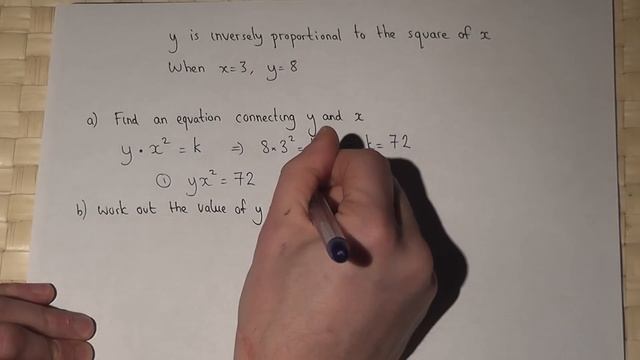 y is inversely proportional to the square of x
When x=3, y=8
a) Find an equation connecting y and x
y · x² = k ⇒ 8×3² = k = 72
① yx² = 72
b) work out the value of y